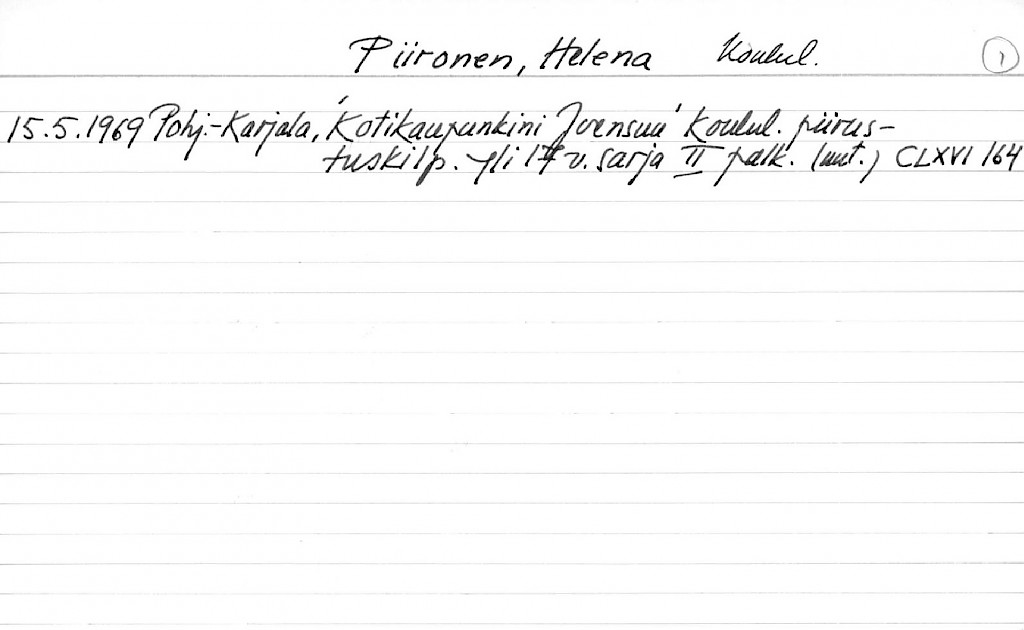 Piironen, Helena Koulul. 1
15.5.1969 Pohj.-Karjala, 'Kotikaupunkini Joensuu' Koulul. piirus-
tuskilp. yli 14 v. sarja II palk. (mt.) CLXVI 164